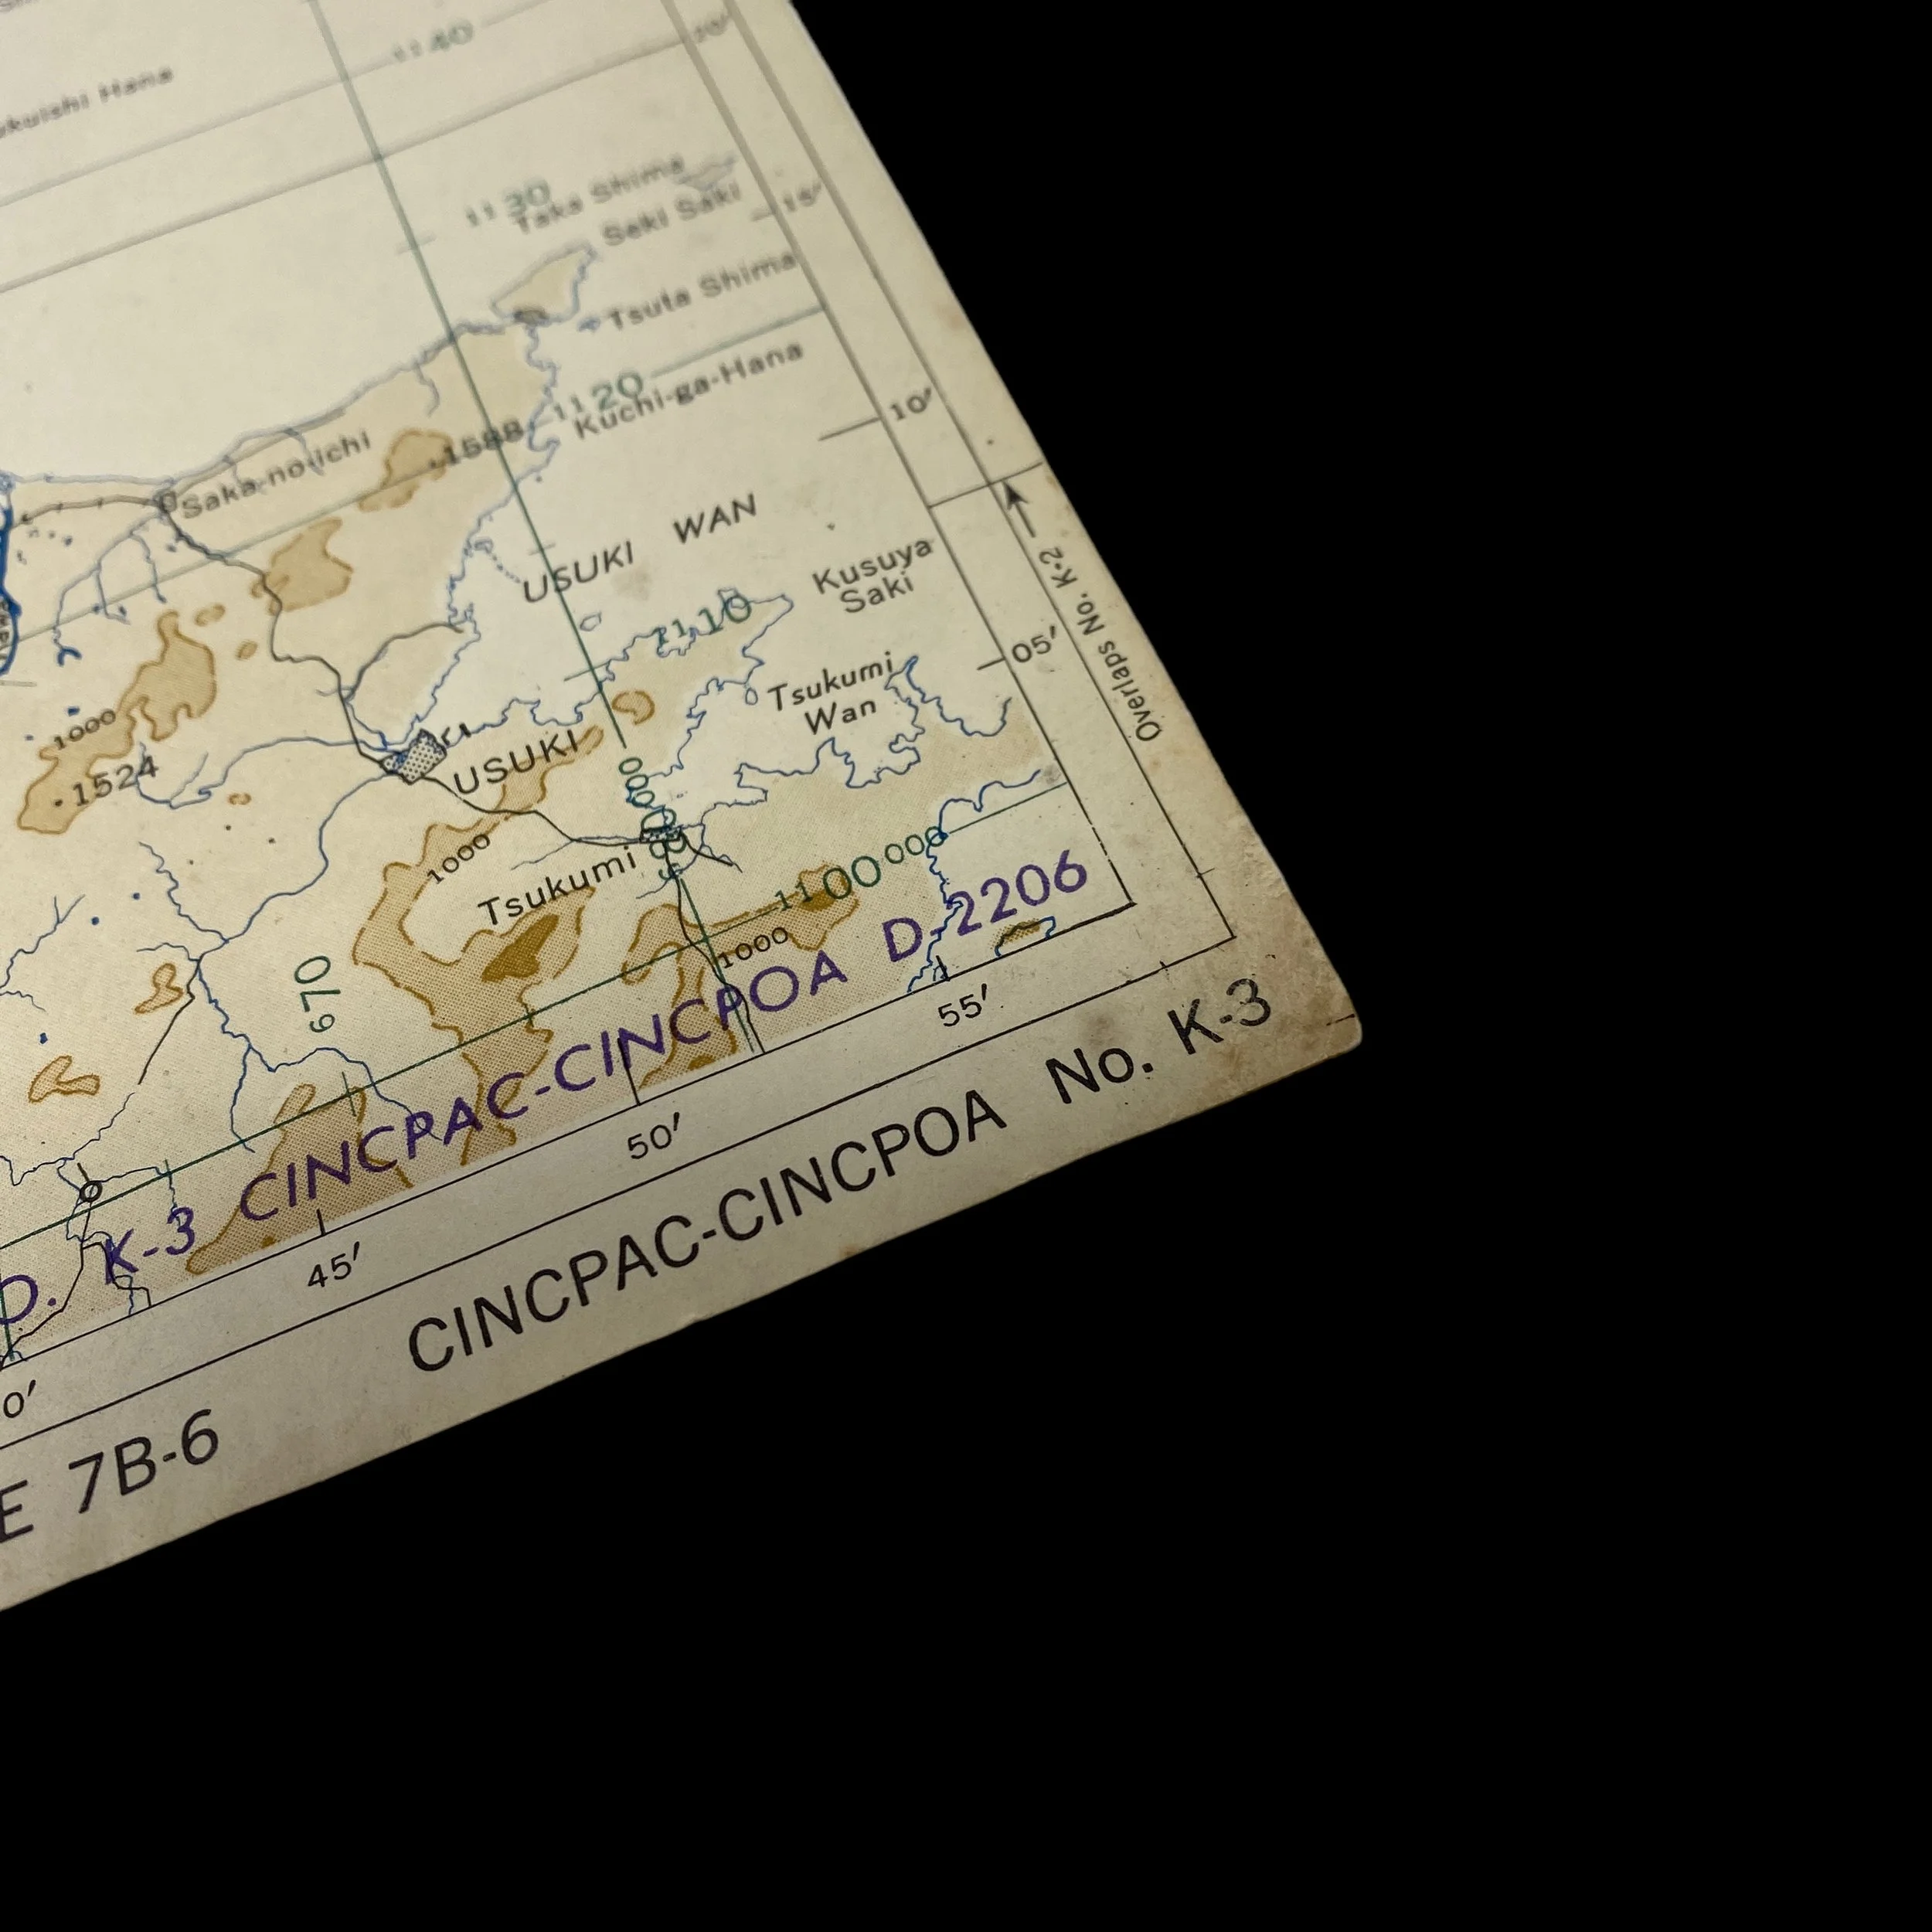 1140
20'
Hana
1130
Taka Shima
Seki Saki
15'
Tsuta Shima
1120
Kuchi-ga-Hana
10'
1588
Saka-no-ichi
USUKI WAN
Kusuya
Saki
1110
05'
Overlaps No. K-2
Tsukumi
Wan
1000
1524
USUKI
000
1000
Tsukumi
1100 000
1000
670
K-3 CINCPAC-CINCPOA D-2206
55'
50'
45'
0'
CINCPAC-CINCPOA No. K-3
E 7B-6